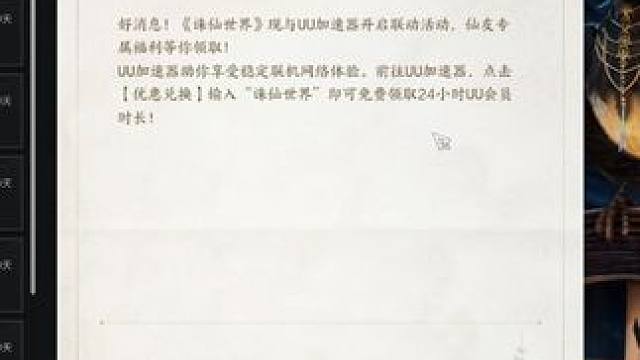 好消息！《诛仙世界》现与UU加速器开启联动活动，仙友专
属福利等你领取！
UU加速器助你享受稳定联机网络体验。前往UU加速器，点击
【优惠兑换】输入“诛仙世界”即可免费领取24小时UU会员
时长！
天
天
天
天
天